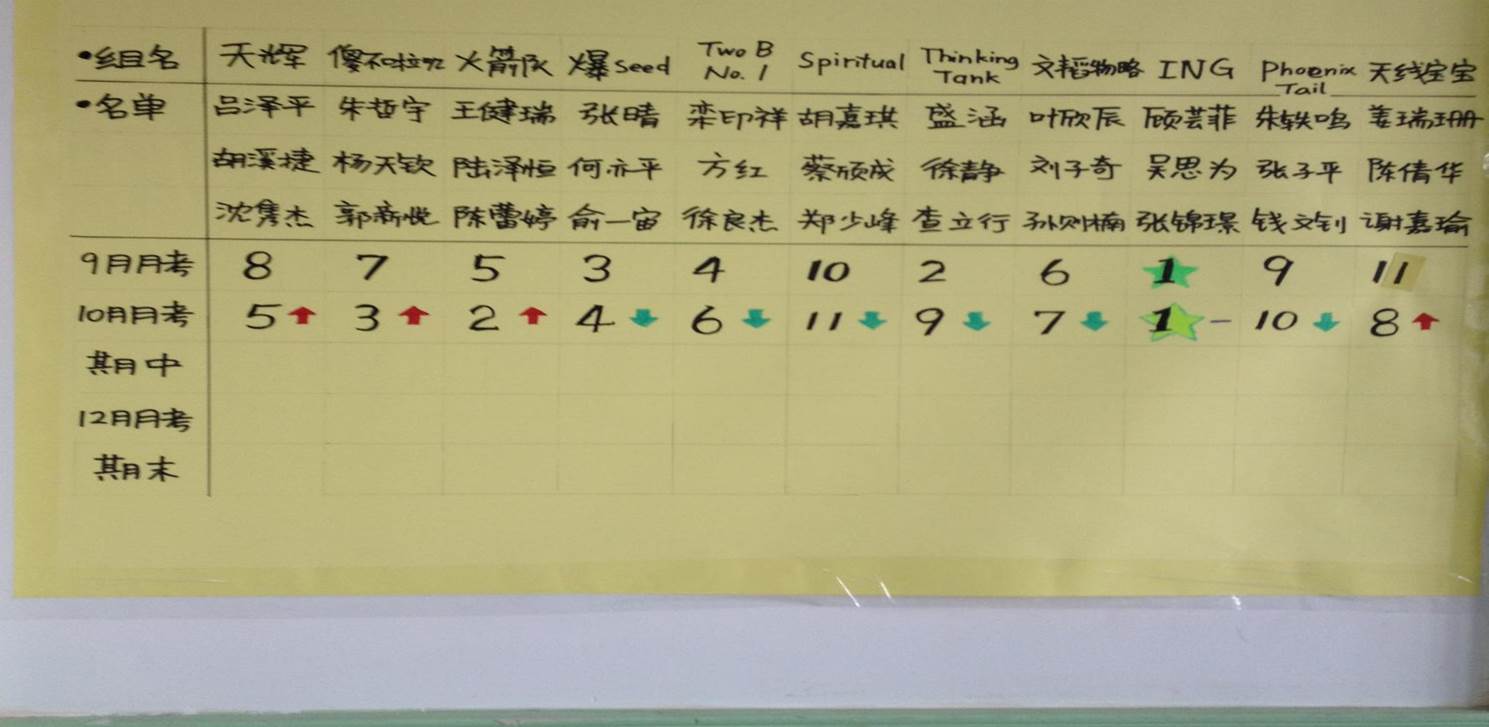 •组名 天辉 傻不拉叽 火箭队 爆Seed Two B No. 1 Spiritual Thinking Tank 文韬物略 ING Phoenix Tail 天线宝宝
•名单 吕泽平 朱哲宇 王健瑞 张晴 栾印祥 胡嘉琪 盛涵 叶欣辰 顾芸菲 朱轶鸣 姜瑞珊
胡溪捷 杨天钦 陆泽恒 何亦平 方红 蔡颀成 徐静 刘子奇 吴思为 张子平 陈倩华
沈隽杰 郭新悦 陈蕾婷 俞一宙 徐良杰 郑少峰 查立行 孙则楠 张锦璟 钱文钊 谢嘉瑜
9月月考 8 7 5 3 4 10 2 6 1 9 11
10月月考 5↑ 3↑ 2↑ 4↓ 6↓ 11↓ 9↓ 7↓ 1 – 10↓ 8↑
期中
12月月考
期末